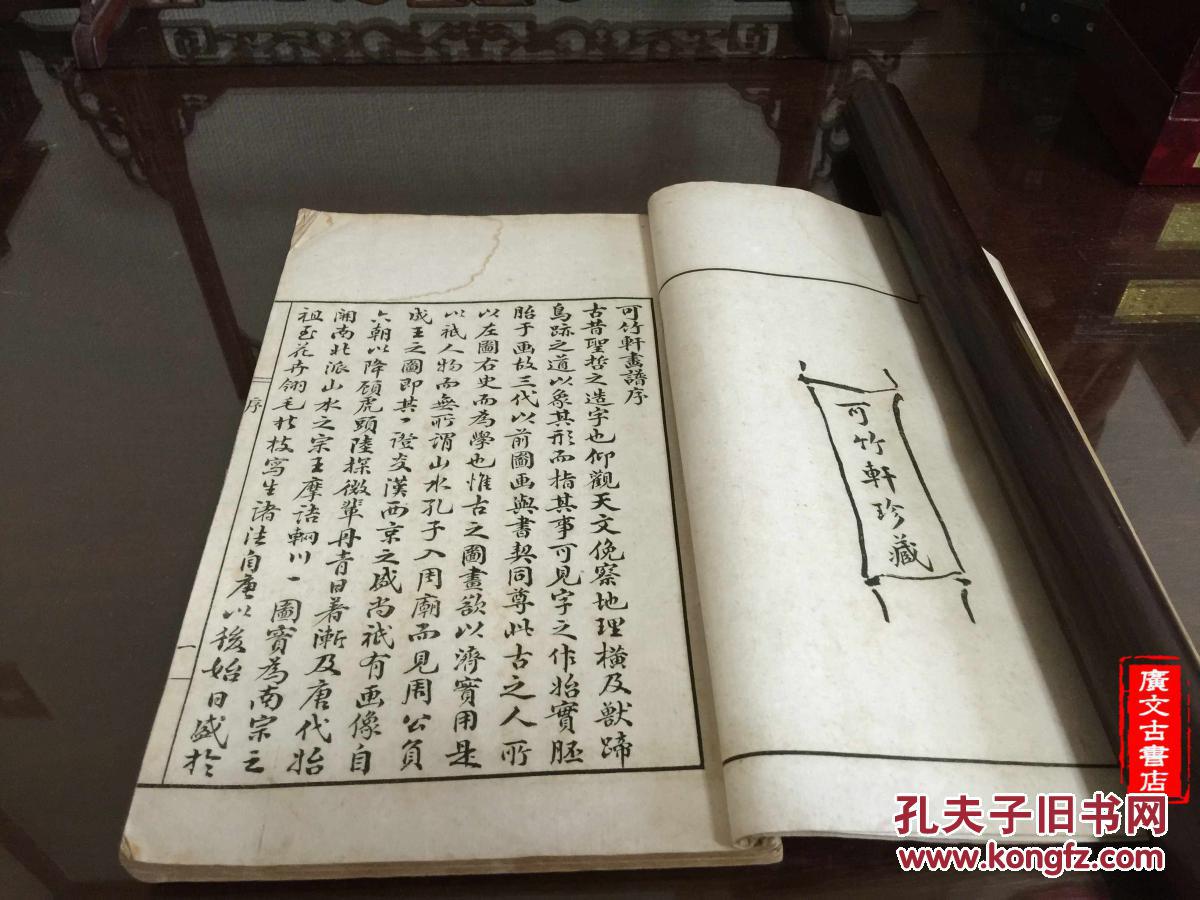 可竹軒珍藏
可竹軒畫譜序
古昔聖哲之造字也仰觀天文俛察地理橫及獸蹄
鳥跡之道以象其形而指其事可見字之作始實胚
胎于画故三代以前圖画與書契同尊此古之人所
以左圖右史而為學也惟古之圖畫欲以濟實用是
以祇人物而無所謂山水孔子入周廟而見周公負
成王之圖即其一證爰漢西京之盛尚祇有画像自
六朝以降顧虎頭陸探微輩丹青日著漸及唐代始
開南北派山水之宗王摩詰輞川一圖實為南宗之
祖至花卉翎毛折枝寫生諸法自唐以後始日盛於
序
一
廣文古書店
孔夫子旧书网
www.kongfz.com